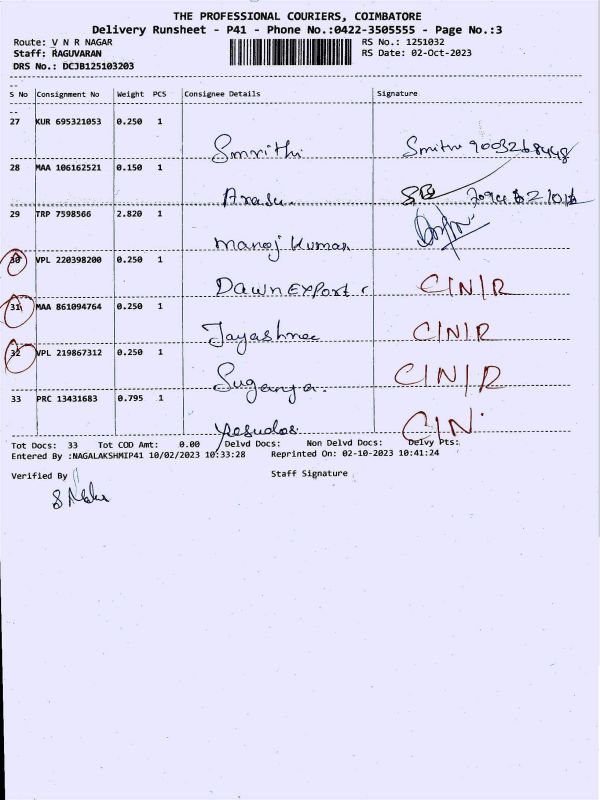 THE PROFESSIONAL COURIERS, COIMBATORE
Delivery Runsheet - P41 - Phone No.:0422-3505555 - Page No.:3
Route: V N R NAGAR RS No.: 1251032
Staff: RAGUVARAN RS Date: 02-Oct-2023
DRS No.: DCJB125103203
S No Consignment No Weight PCS Consignee Details Signature
27 KUR 695321053 0.250 1
Smrithi Smitw 9003268448
28 MAA 106162521 0.150 1
Arasu.
29 TRP 7598566 2.820 1
Manoj Kumar
30 VPL 220398200 0.250 1
Dawn Export C/N/R
31 MAA 861094764 0.250 1
Jayashree C/N/R
32 VPL 219867312 0.250 1
Suganya. C/N/R
33 PRC 13431683 0.795 1
Yesudas C/N.
Tot Docs: 33 Tot COD Amt: 0.00 Delvd Docs: Non Delvd Docs: Delvy Pts:
Entered By :NAGALAKSHMIP41 10/02/2023 10:33:28 Reprinted On: 02-10-2023 10:41:24
Verified By Staff Signature